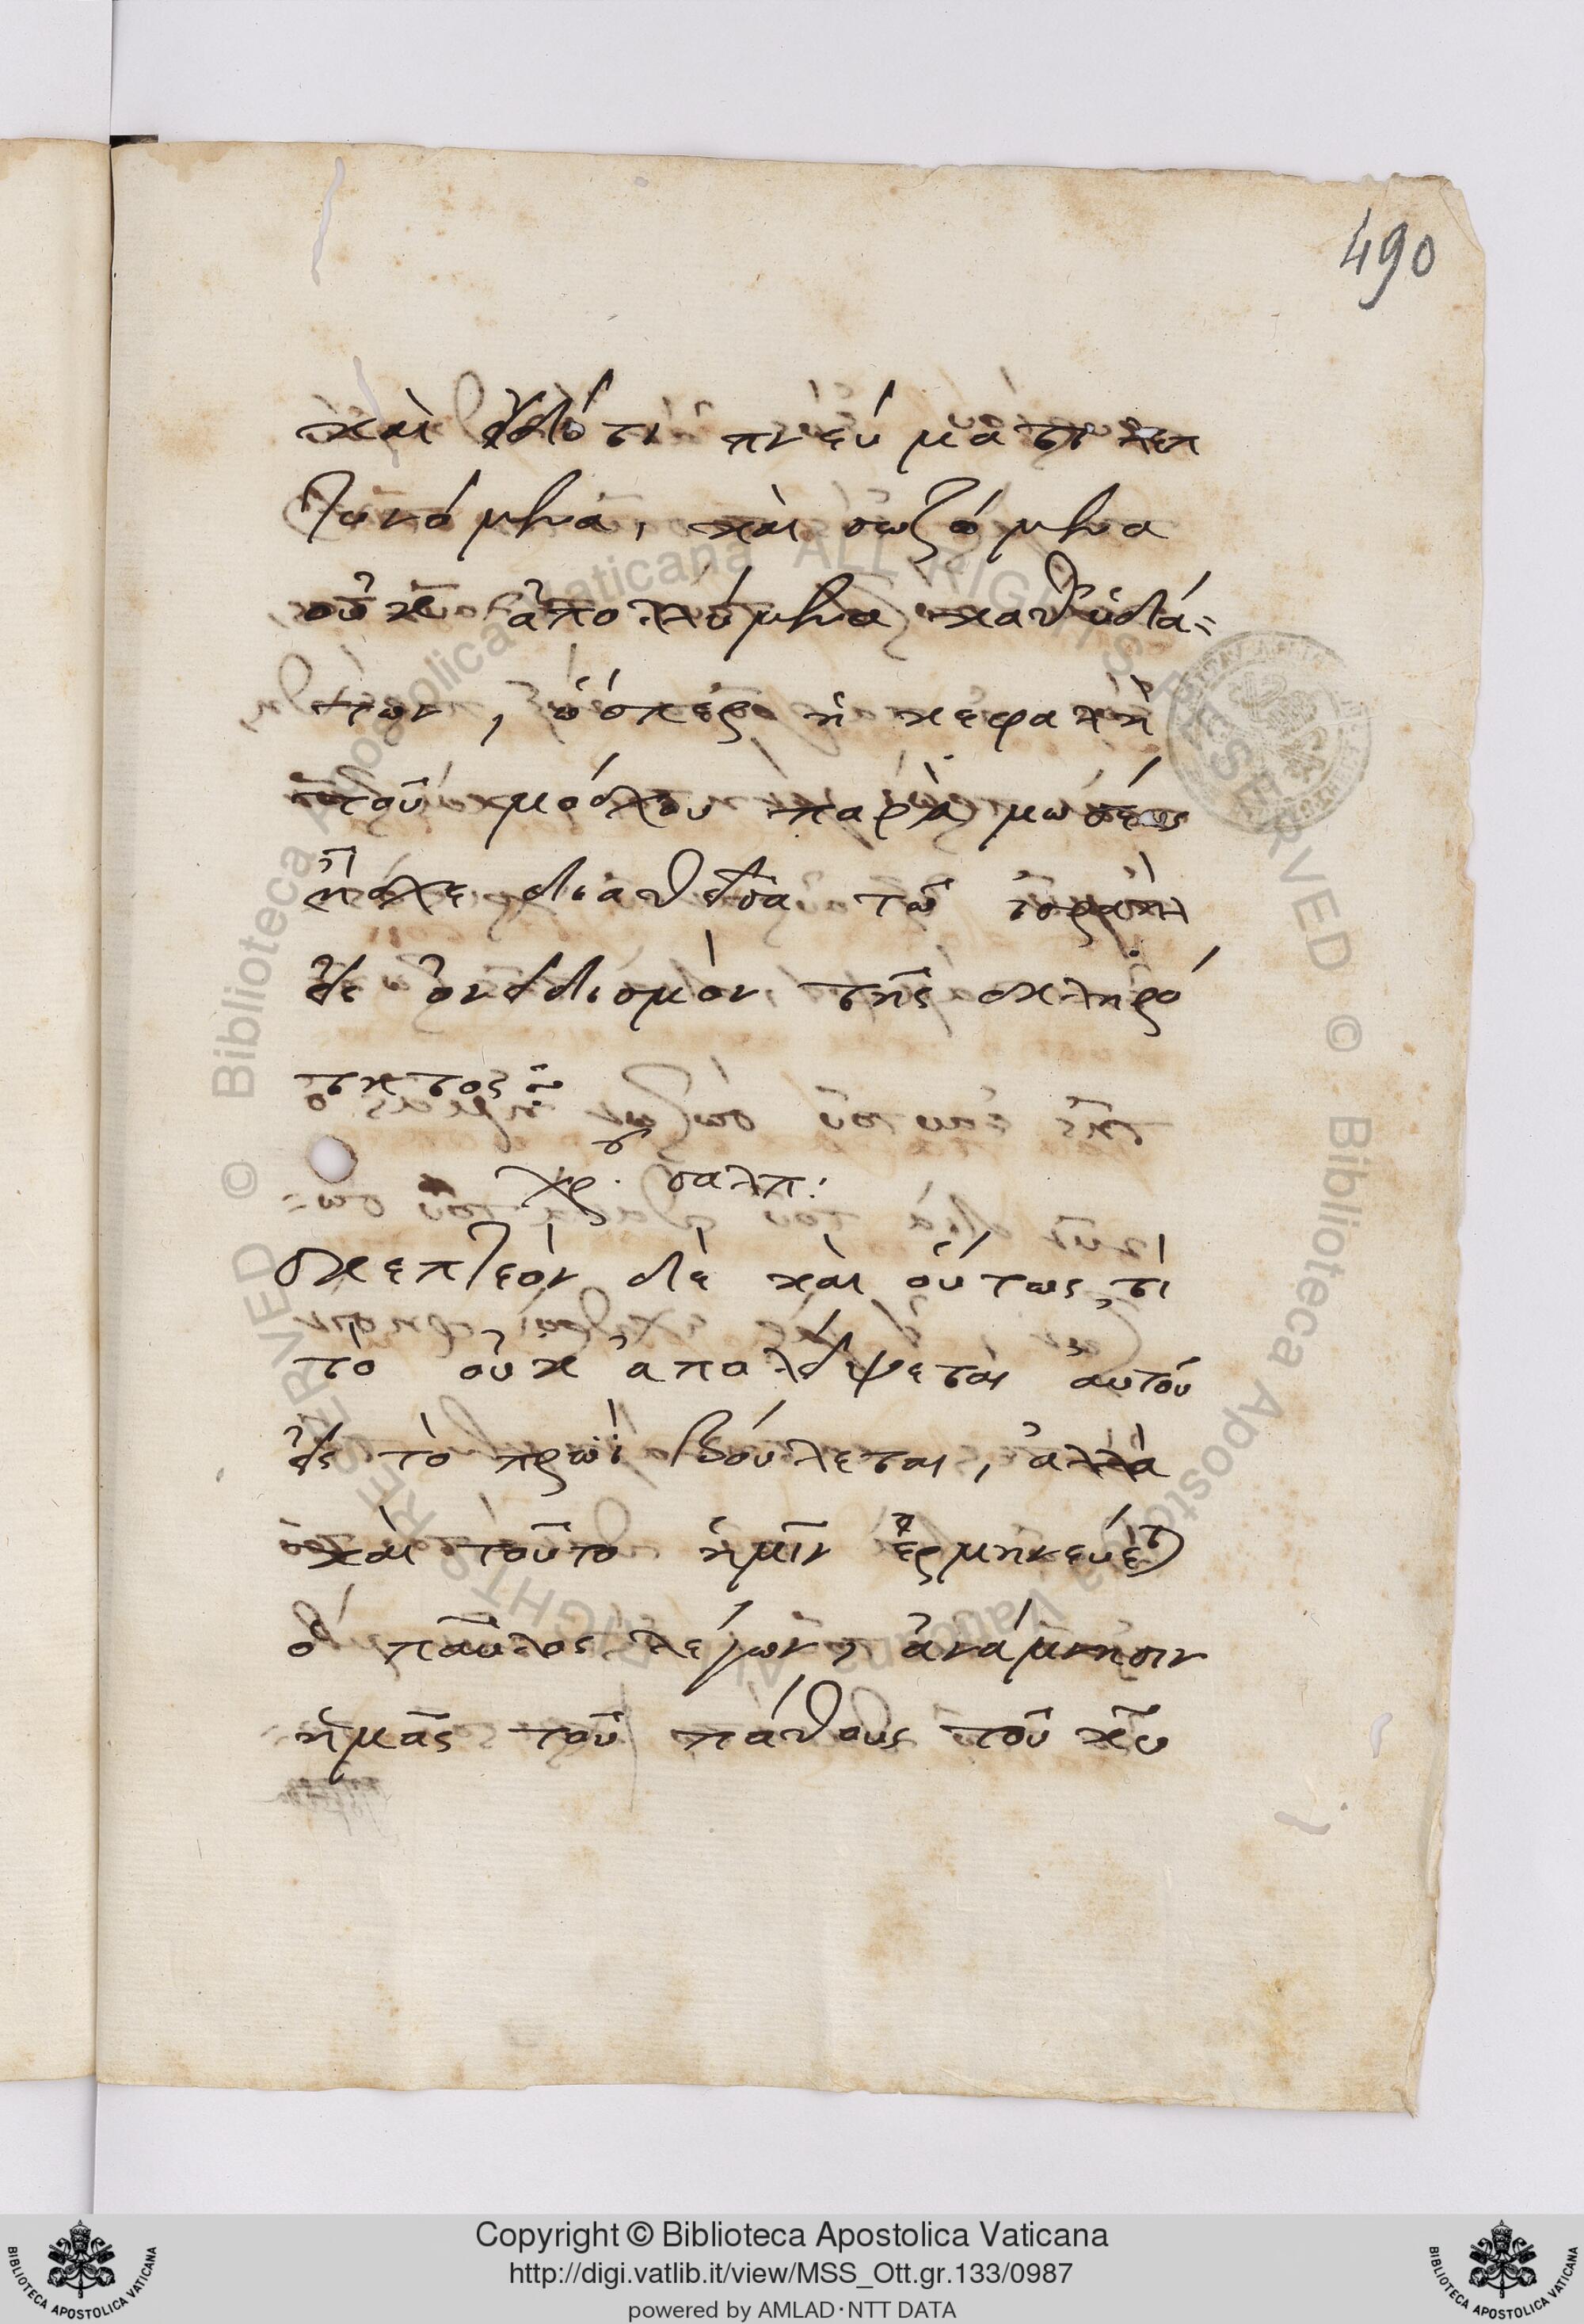 490
καὶ ὑδό τι πνεύματι λεπ
τυνόμενα, καὶ σωζόμενα
οὐκ ἀπολλύμενα καθ' ὑδά=
των, ὥσπερ ἡ κεφαλὴ
τοῦ μόσχου παρὰ μωσέως
ποθεῖσα τῶ ἰσραὴλ
εἰς ὀνειδισμὸν τῆς σκληρό
τητος
χρ. σαλπ:
σκεπτέον δὲ καὶ οὕτως, τί
τὸ οὐκ ἀπολείψεται αὐτοῦ
εἰς τὸ πρωῒ βούλεται, ἀλλὰ
καὶ τοῦτο ἡμῖν ἑρμηνεύει
ὁ παῦλος λέγων, ἀνάμνησιν
ἡμᾶς τοῦ πάθους τοῦ χυ
© Biblioteca Apostolica Vaticana ALL RIGHTS RESERVED
© Biblioteca Apostolica Vaticana ALL RIGHTS RESERVED
Copyright © Biblioteca Apostolica Vaticana
http://digi.vatlib.it/view/MSS_Ott.gr.133/0987
powered by AMLAD·NTT DATA
BIBLIOTECA APOSTOLICA VATICANA
BIBLIOTECA APOSTOLICA VATICANA